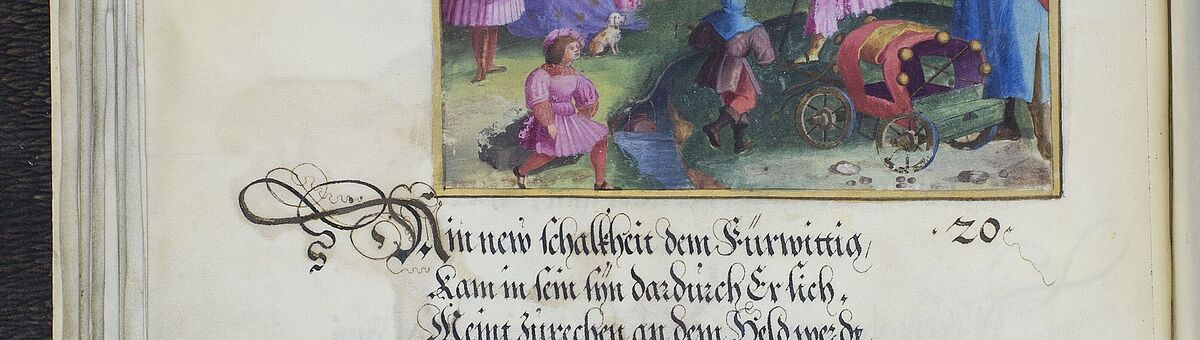 Ain new schalkheit dem Fürwittig/
· 20 ·
Kam in sein syn dardurch Er sich,
Meint zůrechen an dem Held werdt,